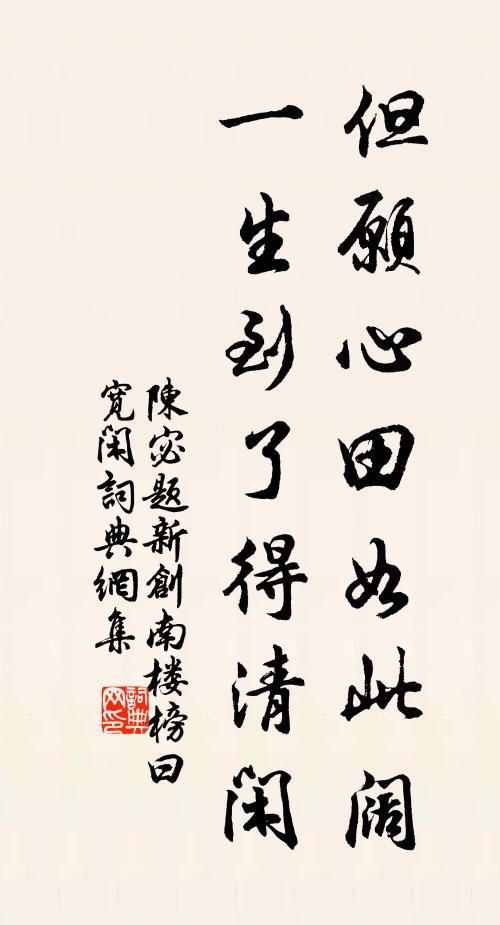 但願心田如此阔
一生到了得清閑
陳宓题新創南楼榜曰
寛閑詞典網集
詞典网印